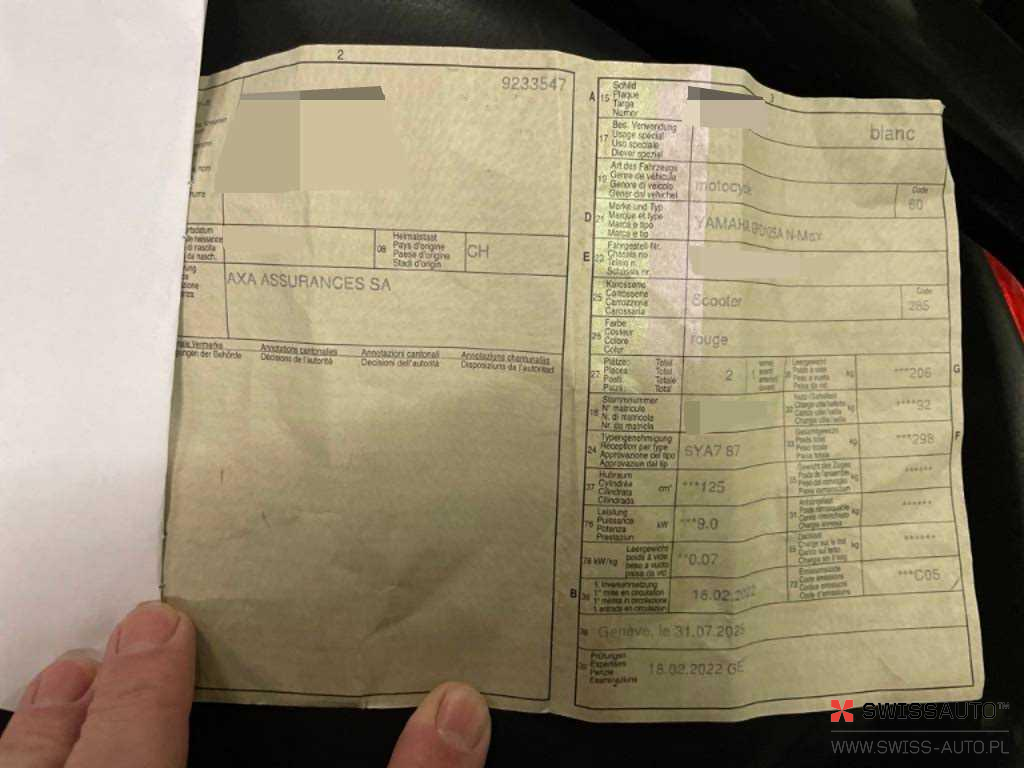 2
9233547
08
Heimatstaat
Pays d'origine
Paese d'origine
Stadi d'origin
CH
AXA ASSURANCES SA
Annotations cantonales
Décisions de l'autorité
Annotazioni cantonali
Decisioni dell'autorità
Annotaziuns chantunalas
Disposiziuns da l'autoritad
A 15
Schild
Plaque
Targa
Numer
blanc
17
Bes. Verwendung
Usage spécial
Uso speciale
Diever spezial
19
Art des Fahrzeugs
Genre de véhicule
Genere di veicolo
Gener dal vehichel
motocycle
Code
60
D 21
Marke und Typ
Marque et type
Marca e tipo
Marca e tip
YAMAHA
N-Max
E 23
Fahrgestell-Nr.
Châssis no
Telaio n.
Schassis nr.
25
Karosserie
Carrosserie
Carrozzeria
Carossaria
Scooter
Code
285
26
Farbe
Couleur
Colore
Colur
rouge
27
Plätze: Total
Places: Total
Posti: Totale
Plazs: Total
2
Leergewicht
Poids à vide
Peso a vuoto
Paisa da vid
kg
***206
G
18
Stammnummer
N° matricule
N. di matricola
Nr. da matricla
32
kg
****92
24
Typengenehmigung
Réception par type
Approvazione del tipo
Approvaziun dal tip
6YA7 87
33
Gesamtgewicht
Poids total
Peso totale
Paisa totala
kg
***298
F
37
Hubraum
Cylindrée
Cilindrata
Cilindrada
cm³
***125
35
kg
******
76
Leistung
Puissance
Potenza
Prestaziun
kW
***9.0
31
kg
******
78 kW/kg
Leergewicht
poids à vide
peso a vuoto
paisa da vid
**0.07
55
kg
******
B 36
1. Inverkehrsetzung
1re mise en circulation
1a messa in circolazione
1. entrada en circulaziun
18.02.2022
72
Emissionscode
Code émissions
Codice emissioni
Code d'emissiuns
***C05
Genève, le 31.07.2025
Prüfungen
Expertises
Perizie
Examinaziuns
18.02.2022 GE
SWISSAUTO™
WWW.SWISS-AUTO.PL